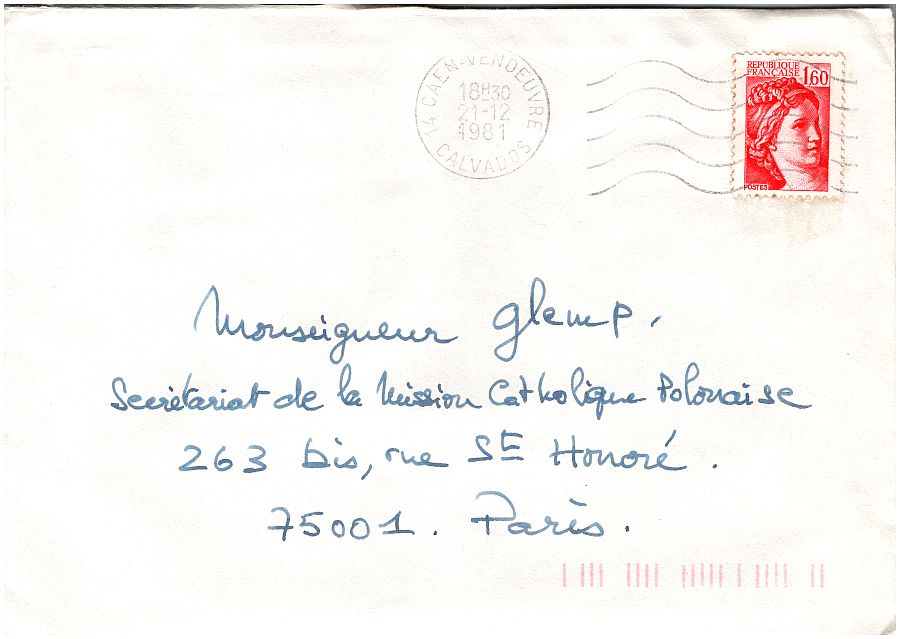 14 CAEN-VENDEUVRE
18H30
21-12
1981
CALVADOS
REPUBLIQUE
FRANÇAISE 1,60
POSTES
Monseigneur Glemp.
Secrétariat de la Mission Catholique Polonaise
263 bis, rue St Honoré.
75001. Paris.